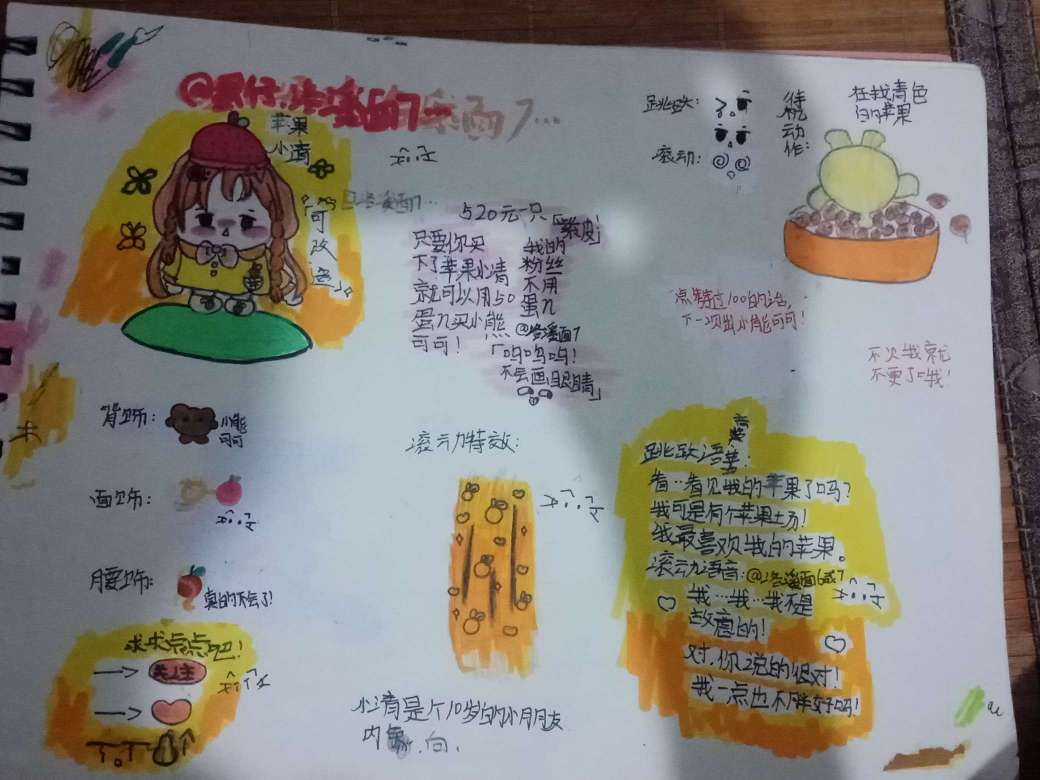 苹果
小清
「可改造」
520元一只
「紫皮」
只要你买
下了苹果小清
就可以用50
蛋九买小熊
可可!
我的
粉丝
不用
蛋九
「呜呜呜!
不会画眼睛」
跳跃:
滚动:
待机动作:
在找青色
的苹果
点赞过100的话,
下一次出小熊可可!
不火我就
不更了哦!
背饰:
小熊
可可
面饰:
腰饰:
真的不会了!
求求点点吧!
关注
滚动特效:
小清是个10岁的小朋友
内向.
跳跃语音:
看…看见我的苹果了吗?
我可是有个苹果土场!
我最喜欢我的苹果。
滚动语音:
我…我…我不是
故意的!
对.你说的很对!
我一点也不胖好吗!